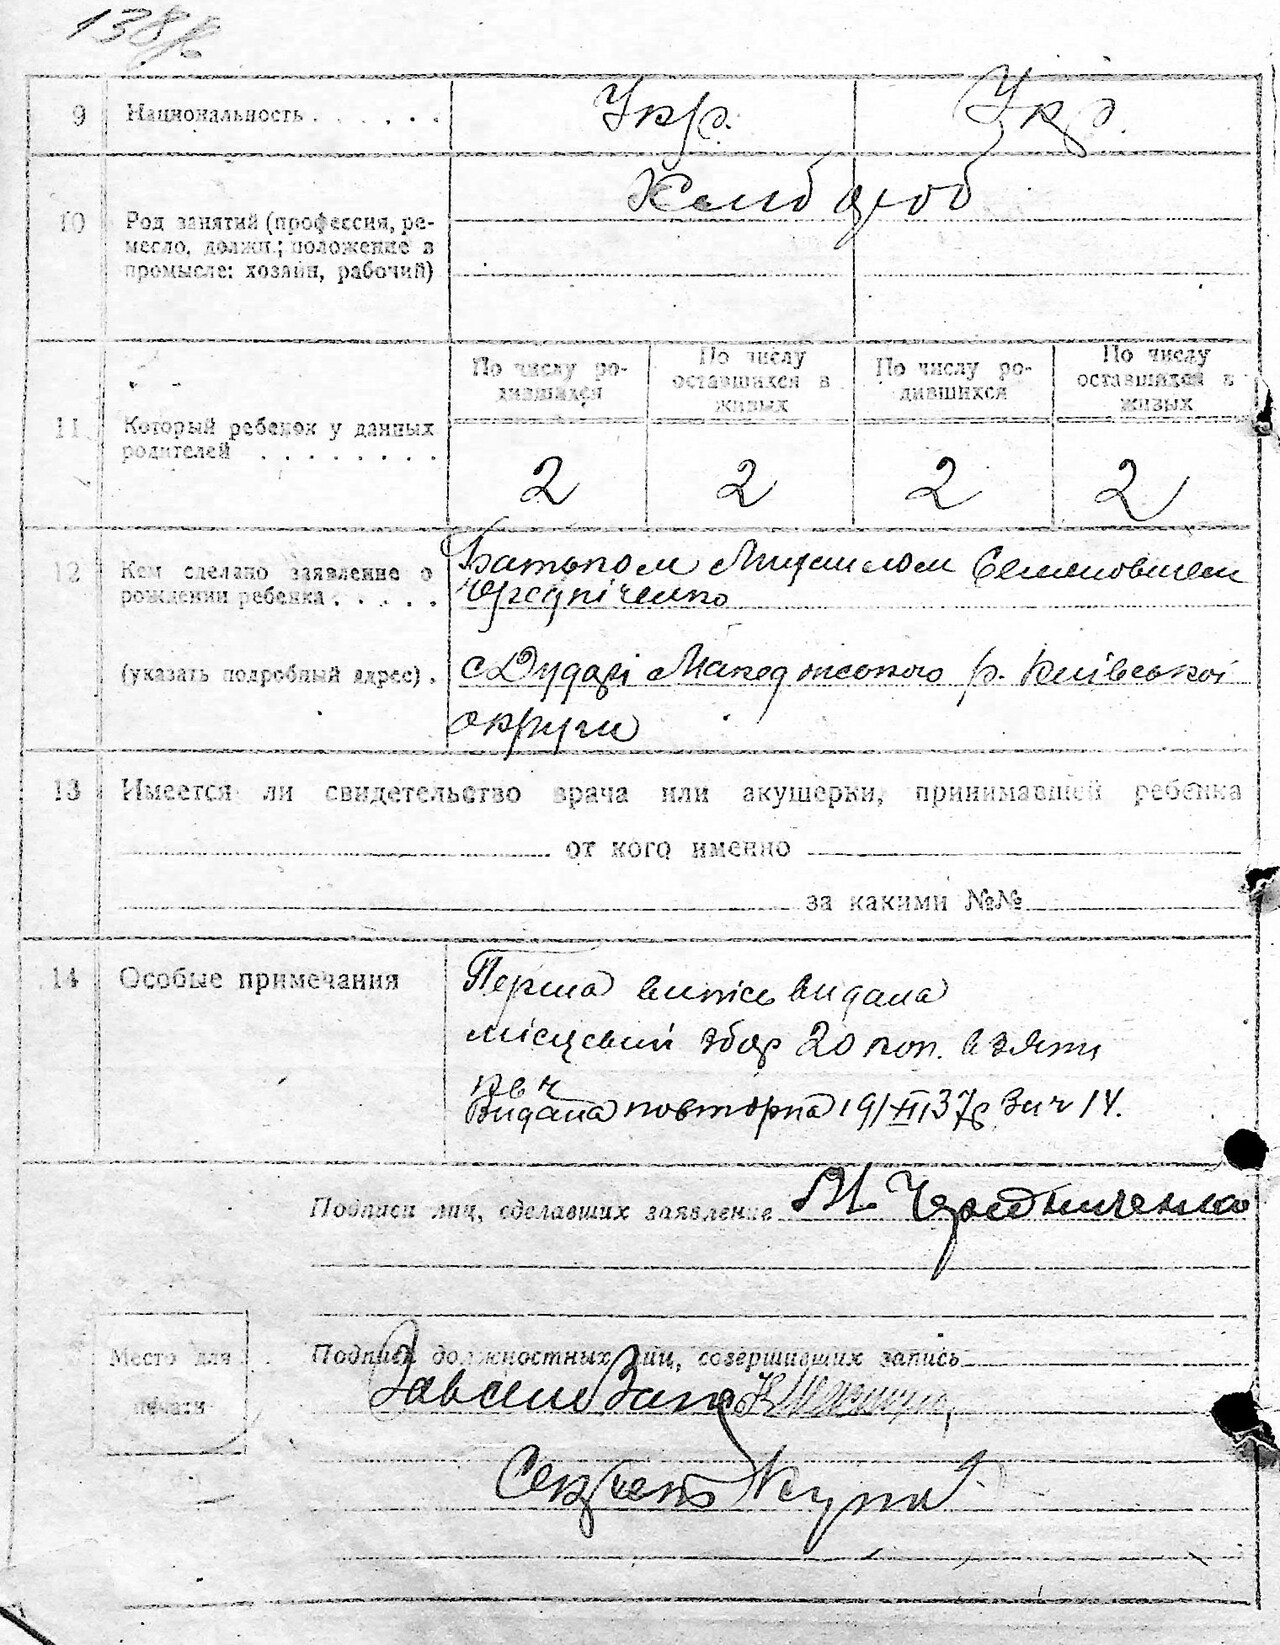 138
9 Национальность . . . . . . Укр. Укр.
10 Род занятий (профессия, ре-
месло, должн.; положение в
промысле: хозяин, рабочий)
Хлібороб
11 Который ребенок у данных
родителей . . . . . . . .
По числу ро-
дившихся
По числу
оставшихся в
живых
По числу ро-
дившихся
По числу
оставшихся в
живых
2 2 2 2
12 Кем сделано заявление о
рождении ребенка . . . . .
(указать подробный адрес) .
Батьком Михайлом Семеновичем
с Дударі р. Київської
округи
13 Имеется ли свидетельство врача или акушерки, принимавшей ребенка
от кого именно
за какими №№
14 Особые примечания
Перша випись видана
місцевий збор 20 коп. взято
Видана повторна 19/XII 37р.
Подписи лиц, сделавших заявление М. Чередниченко
Место для
печати
Подписи должностных лиц, совершивших запись